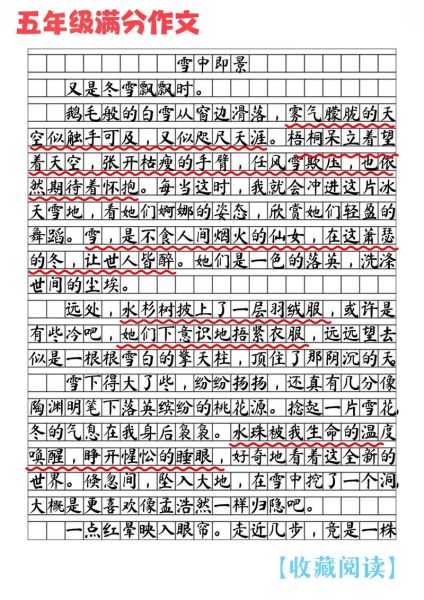 五年级满分作文
雪中即景
又是冬雪飘飘时。
鹅毛般的白雪从窗边滑落，雾气朦胧的天
空似触手可及，又似咫尺天涯。梧桐呆立着望
着天空，张开枯瘦的手臂，任风雪欺压，也依
然期待着怀抱。每当这时，我就会冲进这片冰
天雪地，看她们婀娜的姿态，欣赏她们轻盈的
舞蹈。雪，是不食人间烟火的仙女，在这萧瑟
的冬，让世人皆醉。她们是一色的落英，洗涤
世间的尘埃。
远处，水杉树披上了一层羽绒服，或许是
有些冷吧，她们下意识地捂紧衣服，远远望去
似是一根根雪白的擎天柱，顶住了那阴沉的天。
雪下得大了些，纷纷扬扬，还真有几分像
陶渊明笔下落英缤纷的桃花源。捻起一片雪花，
冬的气息在我身后袅袅。水珠被我生命的温度
唤醒，睁开惺忪的睡眼，好奇地看着这全新的
世界。倏忽间，坠入大地，在雪中挖了一个洞，
大概是更喜欢像孟浩然一样归隐吧。
一点红晕映入眼帘。走近几步，竟是一株
【收藏阅读】